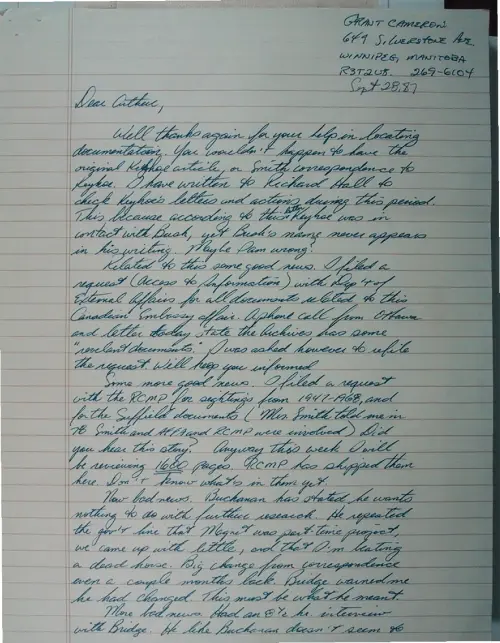 GRANT CAMERON
649 SILVERSTONE AVE
WINNIPEG, MANITOBA
R3T 2V8. 269-6104
Sept 28, 87
Dear Arthur,
Well thanks again for your help in locating
documentation. You wouldn't happen to have the
original Keyhoe article, or Smith correspondence to
Keyhoe. I have written to Richard Hall to
check Keyhoe's letters and actions during this period.
This because according to this letter Keyhoe was in
contact with Bush, yet Bush's name never appears
in his writing. Maybe I am wrong?
Related to this some good news. I filed a
request (Access to Information) with Dep't of
External Affairs for all documents related to this
Canadian Embassy affair. A phone call from Ottawa
and letter today state the Archives has some
"relevant documents". I was asked however to refile
the request. Will keep you informed
Some more good news. I filed a request
with the RCMP for sightings from 1947-1968, and
for the Suffield documents (Mrs. Smith told me in
78 Smith and and RCMP were involved) Did
you hear this story. Anyway this week I will
be reviewing 1600 pages. RCMP has shipped them
here. Don't know what's in them yet.
Now bad news. Buchanan has stated he wants
nothing to do with further research. He repeated
the gov't line that Magnet was part-time project,
we came up with little, and that I'm beating
a dead horse. Big change from correspondence
even a couple months back. Bridge warned me
he had changed. This must be what he meant.
More bad news. Had an hr interview
with Bridge. He like Buchanan doesn't seem to